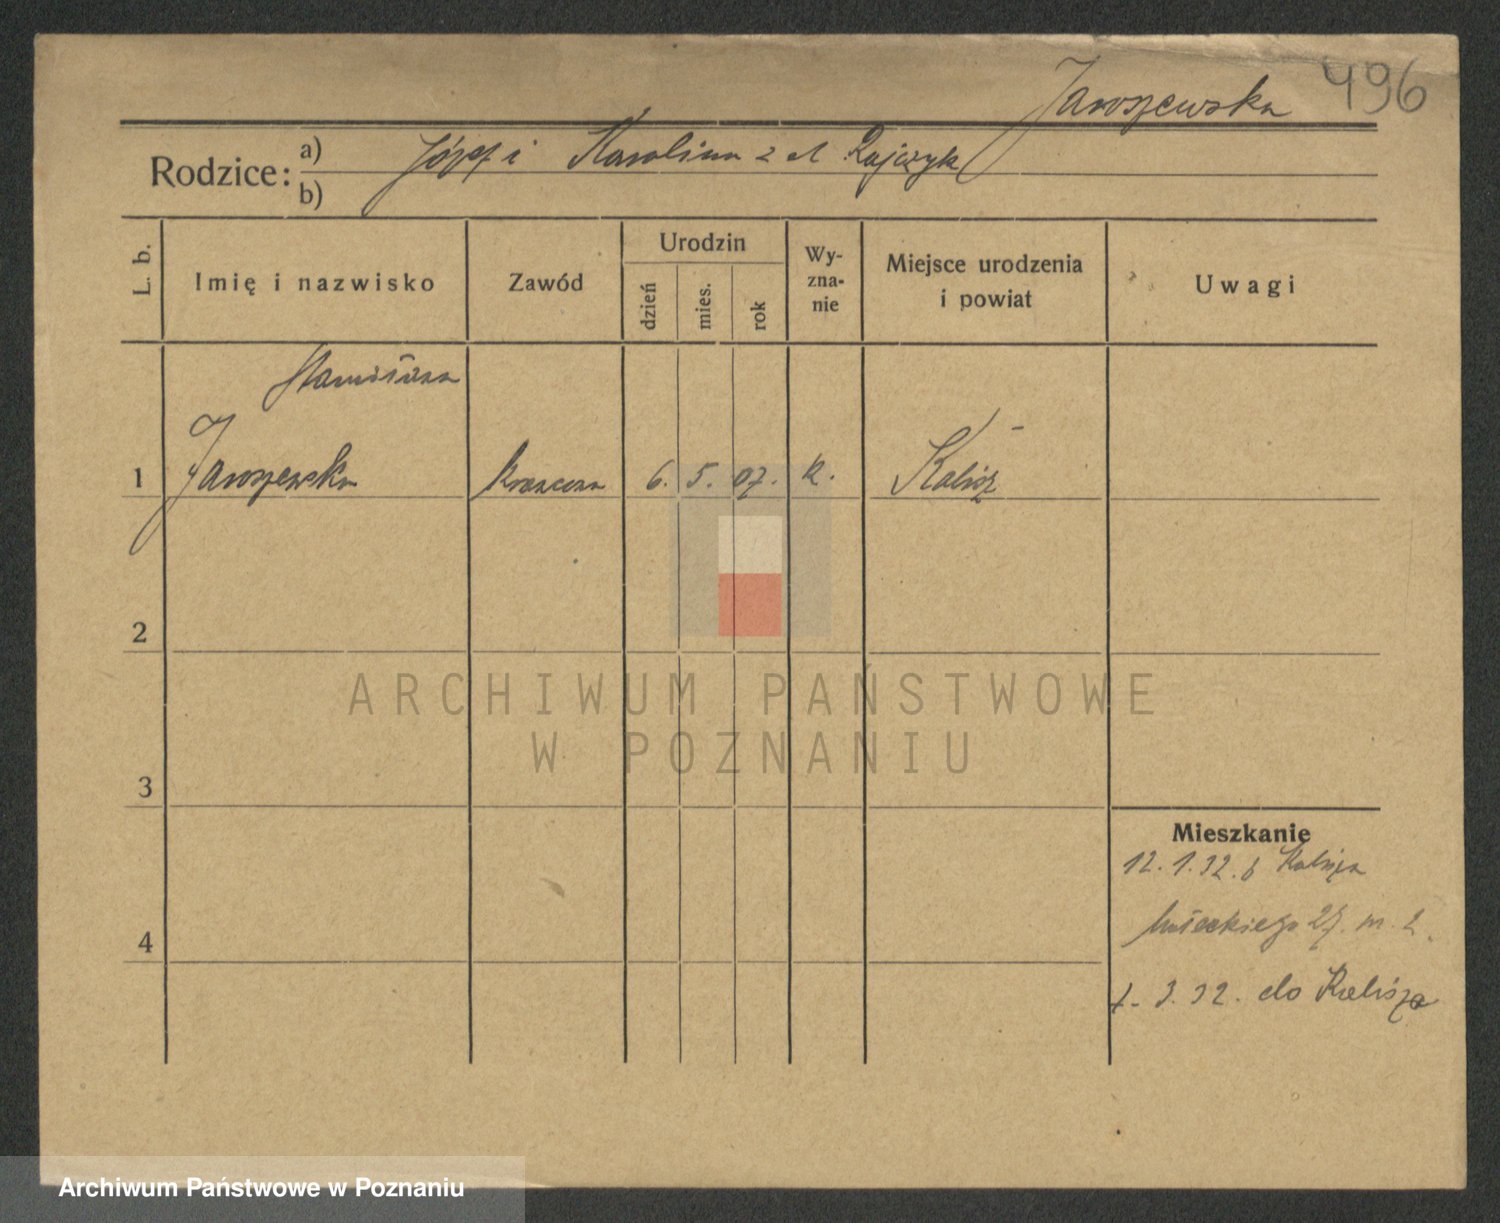 496
Jaroszewska
Rodzice:
a) Józef i Karolina z d. Rajczyk
b)
L. b.
Imię i nazwisko
Zawód
Urodzin
dzień
mies.
rok
Wy-
zna-
nie
Miejsce urodzenia
i powiat
Uwagi
Stanisława
1 Jaroszewska krawcowa 6. 5. 07. k. Kalisz
2
3
4
Mieszkanie
12. 1. 32. z Kalisza
Małeckiego 27. m. 2.
3. 32. do Kalisza
ARCHIWUM PAŃSTWOWE
W POZNANIU
Archiwum Państwowe w Poznaniu